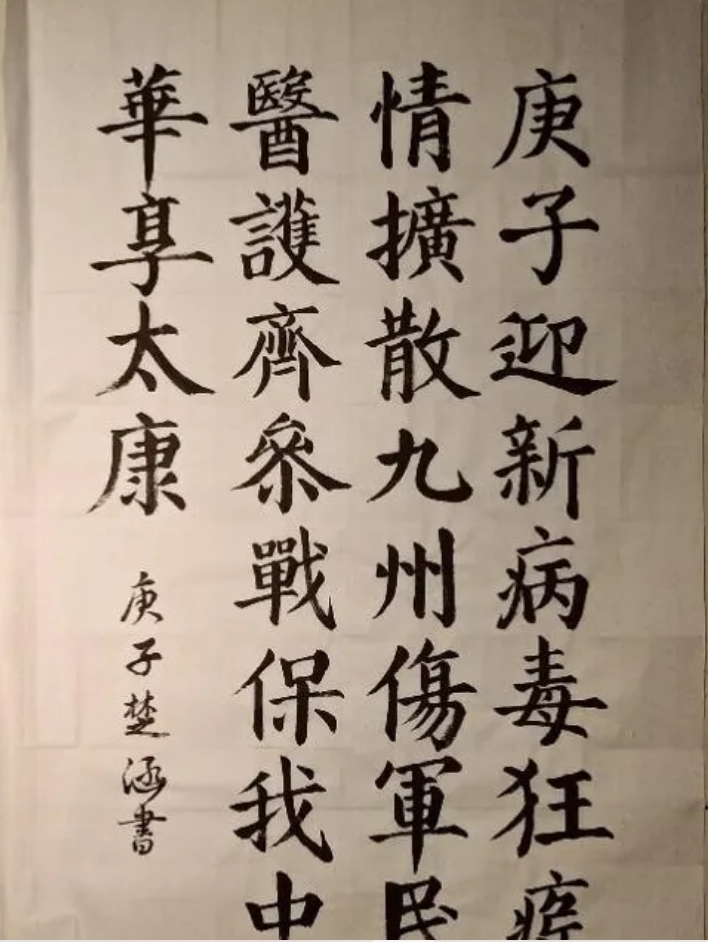 庚子迎新病毒狂疫
情擴散九州傷軍民
醫護齊參戰保我中
華享太康
庚子楚涵書